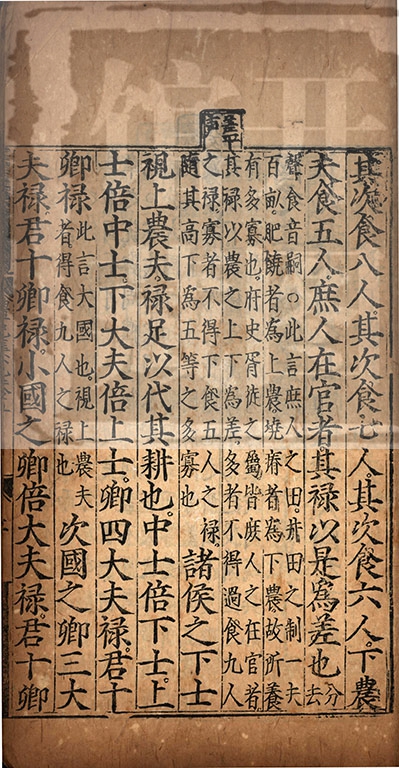 其次食八人其次食七人其次食六人下農
夫食五人庶人在官者其祿以是爲差也分去
聲食音嗣○此言庶人之田井田之制一夫
百畝肥饒者爲上農墝瘠者爲下農故所養
有多寡也府史胥徒之屬皆庶人之在官者
其祿以農之上下爲差多者不得過食九人
之祿寡者不得下食五人之祿
隨其高下爲五等之多寡也諸侯之下士
視上農夫祿足以代其耕也中士倍下士上
士倍中士下大夫倍上士卿四大夫祿君十
卿祿此言大國也視上農夫
者得食九人之祿也次國之卿三大
夫祿君十卿祿小國之卿倍大夫祿君十卿